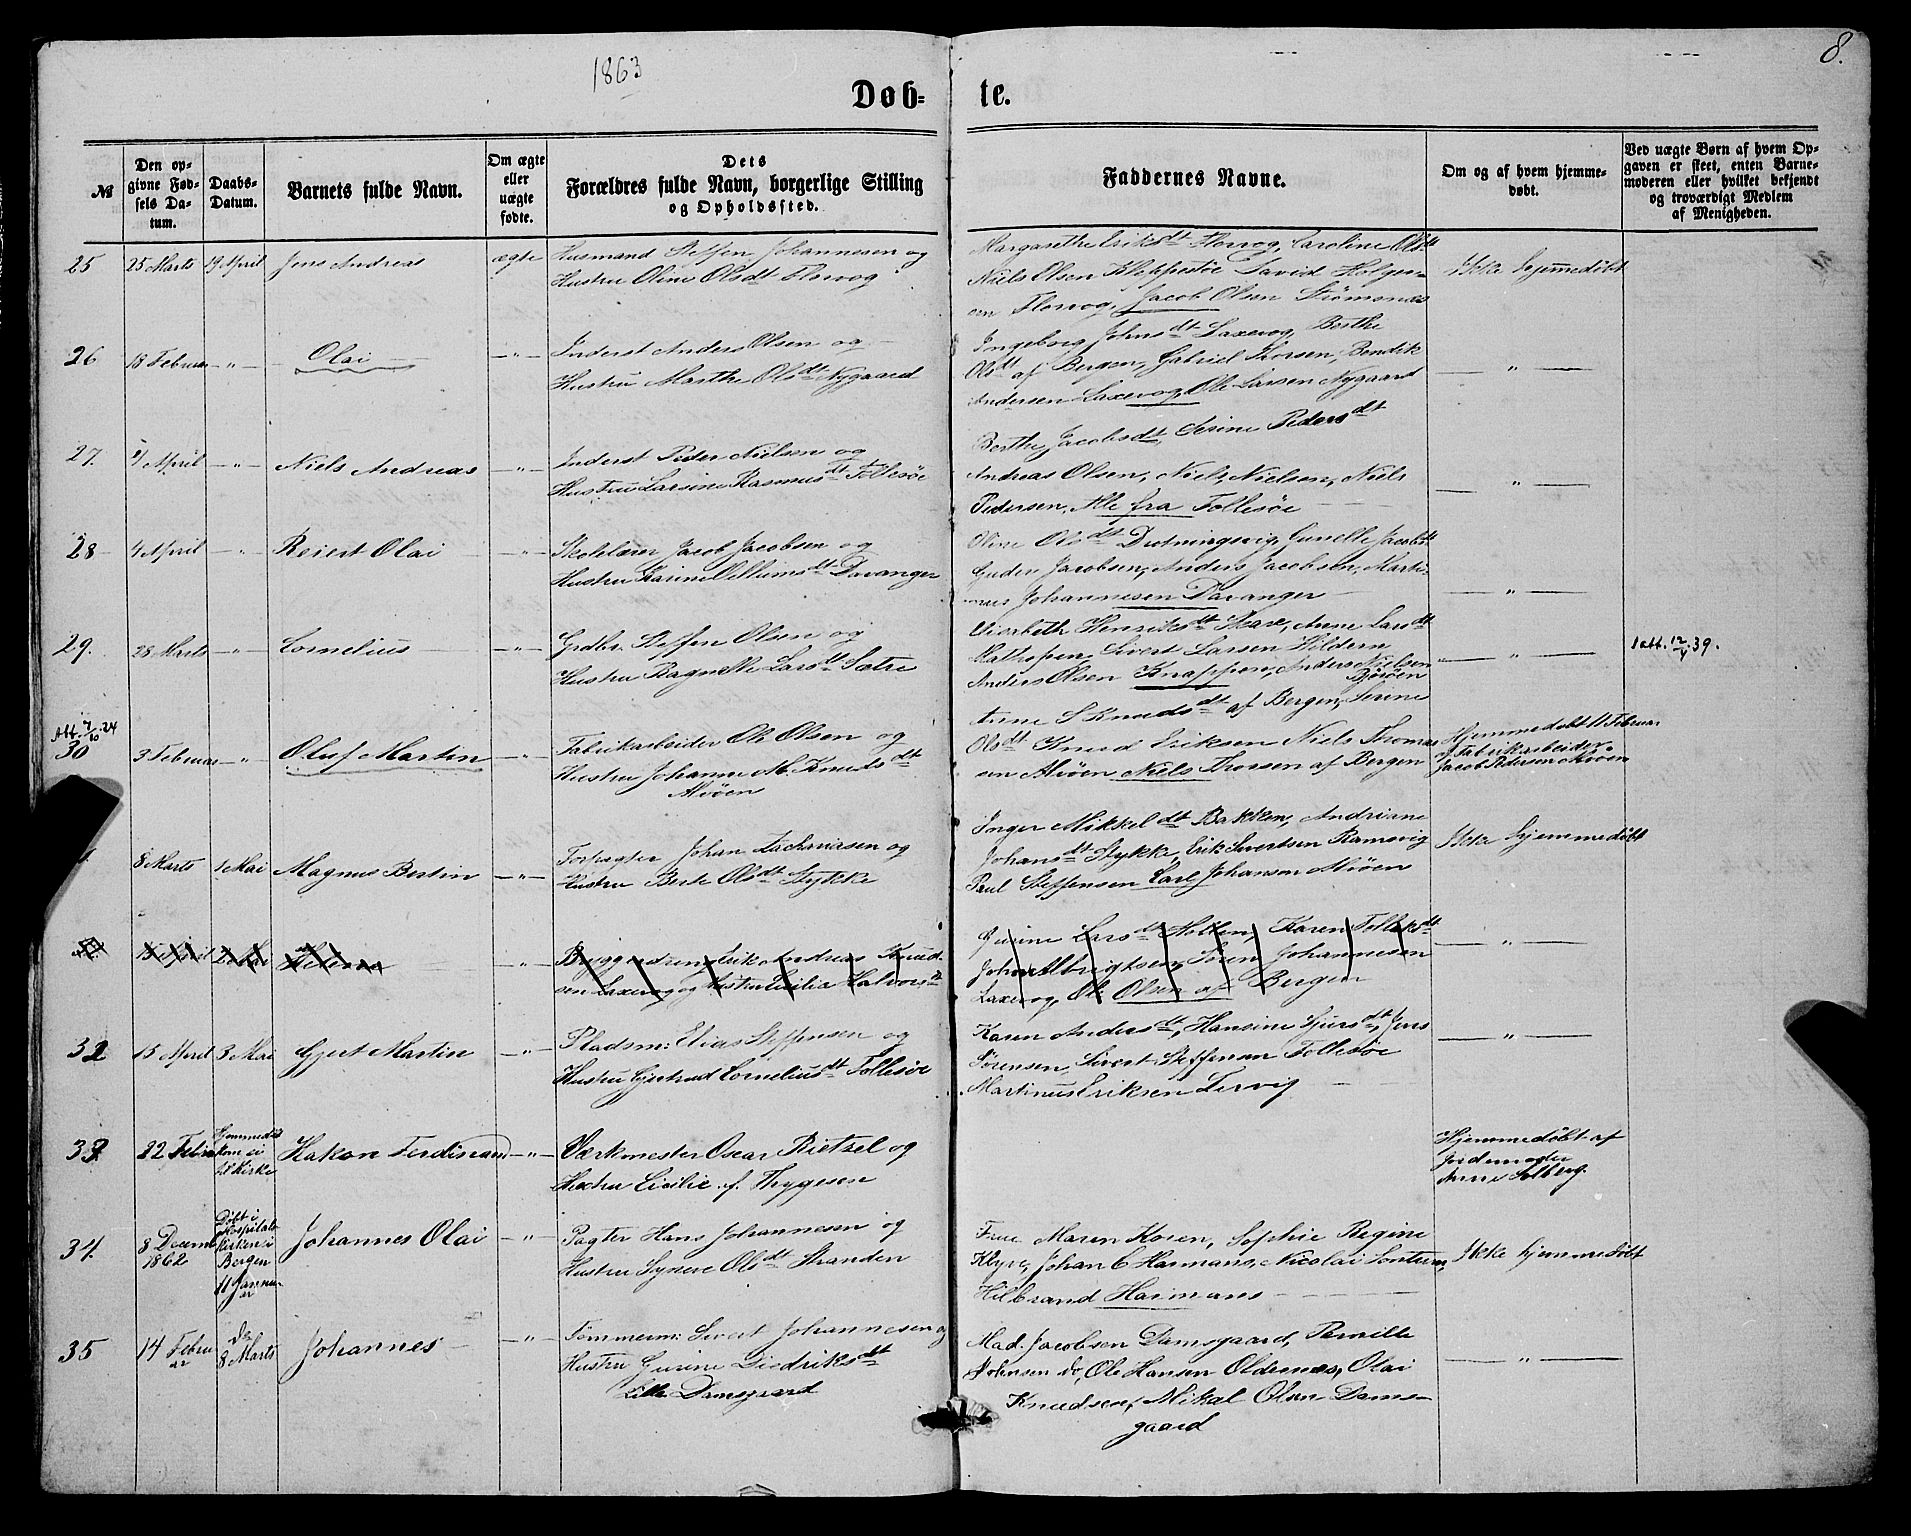 1863
8.
Døb- te.
№
Den op-
givne Fød-
sels Da-
tum.
Daabs-
Datum.
Barnets fulde Navn.
Om ægte
eller
uægte
fødte.
Dets
Forældres fulde Navn, borgerlige Stilling
og Opholdssted.
Faddernes Navne.
Om og af hvem hjemme-
døbt.
Ved uægte Børn af hvem Op-
gaven er skeet, enten Barne-
moderen eller hvilket bekjendt
og troværdigt Medlem
af Menigheden.
25 25 Marts 19 April Jens Andreas ægte
Husmand Steffen Johannesen og
Hustru Oline Olsdt Florvog
Margarethe Eriksdt Florvog, Caroline Olsdt
Niels Olsen Kleppestøe David Holger-
sen Florvog, Jacob Olsen Strømsnes
Ikke hjemmedøbt
26 18 Februar -„- Olai -„-
Inderst Anders Olsen og
Hustru Marthe Olsdt Nygaard
Ingeborg Johnsdt Laxevog, Berthe
Olsdt af Bergen, Gabriel Thorsen, Bendik
Andersen Laxevog, Ole Larsen Nygaard
-„-
27. April -„- Niels Andreas -„-
Inderst Peder Nielsen og
Hustru Larsine Rasmusdt Follesøe
Berthe Jacobsdt, Serine Pedersdt
Andreas Olsen, Niels Nielsen, Niels
Pedersen, Alle fra Follesøe
-„-
28 4 April -„- Reiert Olai -„-
Skolelærer Jacob Jacobsen og
Hustru Karine Villumsdt Davanger
Oline Olsdt Drotningsvig, Gunelle Jacobsdt
Guder Jacobsen, Anders Jacobsen, Marti-
nus Johannesen Davanger
-„-
29. 28 Marts -„- Cornelius -„-
Grdbr. Steffen Olsen og
Hustru Ragnelle Larsdt Sætre
Elisabeth Henriksdt Skare, Anne Larsdt
Hathopen, Sivert Larsen Hildern
Anders Olsen Knappen, Anders Nielsen
Bjørøen
-„-
1 att. 12/4 39.
Att. 7/10 24
30 3 Februar -„- Oluf Martin -„-
Fabrikarbeider Ole Olsen og
Hustru Johanne M. Knudsdt
Alvøen
Anne S Knudsdt af Bergen, Serine
Olsdt Knud Eriksen Niels Thomas-
sen Alvøen Niels Thorsen af Bergen
Hjemmedøbt 11 Februar
af Fabrikarbeider
Jacob Pedersen Alvøen
8 Marts 1 Mai Magnus Bertin -„-
Forpagter Johan Zachariasen og
Hustru Berte Olsdt Stykke
Inger Mikkeldt Bakken, Andriane
Johansdt Stykke, Erik Sivertsen Ramsvig
Paul Steffensen Carl Johanson Alvøen
Ikke hjemmedøbt
15 April 2 Mai Helene -„-
Bryggedreng Erik Andreas Knud-
sen Laxevog og Hustru Cecilia Halvorsdt
Gurine Larsdt Holten, Karen Folleksdt
John Albrigtsen, Søren Johannesen
Laxevog, Ole Olsen af Bergen
-„-
32 15 April 3 Mai Gjert Martin -„-
Pladsm: Elias Steffensen og
Hustru Gjertrud Corneliusdt Follesøe
Karen Andersdt, Hansine Sjursdt, Jens
Sørensen, Sivert Steffensen Follesøe
Martinus Eriksen Lervig
-„-
33 22 Febru Hjemmedøbt
kom ei
til Kirke
Hakon Ferdinand -„-
Værkmester Oscar Rietzel og
Hustru Cicilie f. Thygesen
Hjemmedøbt af
Jordemoder
Anne Solberg.
34. 8 Decemb
1862
Døbt i
Hospitals
Kirken i
Bergen
11 Janu-
ar
Johannes Olai -„-
Pagter Hans Johannesen og
Hustru Synere Olsdt Stranden
Frue Maren Koren, Sophie Regine
Klyve, Johan C Harmans, Nicolai Sontum,
Hilbrand Harmans
Ikke hjemmedøbt
35 14 Febru
ar
do
8 Marts
Johannes -„-
Tømmerm: Sivert Johannesen og
Hustru Gurine Diedriksdt
Lille Damsgaard
Mad. Jacobsen Damsgaard, Pernille
Johnsen do, Ole Hansen Oldernes, Olai
Knudsen, Mikal Olsen Dams-
gaard
-„-